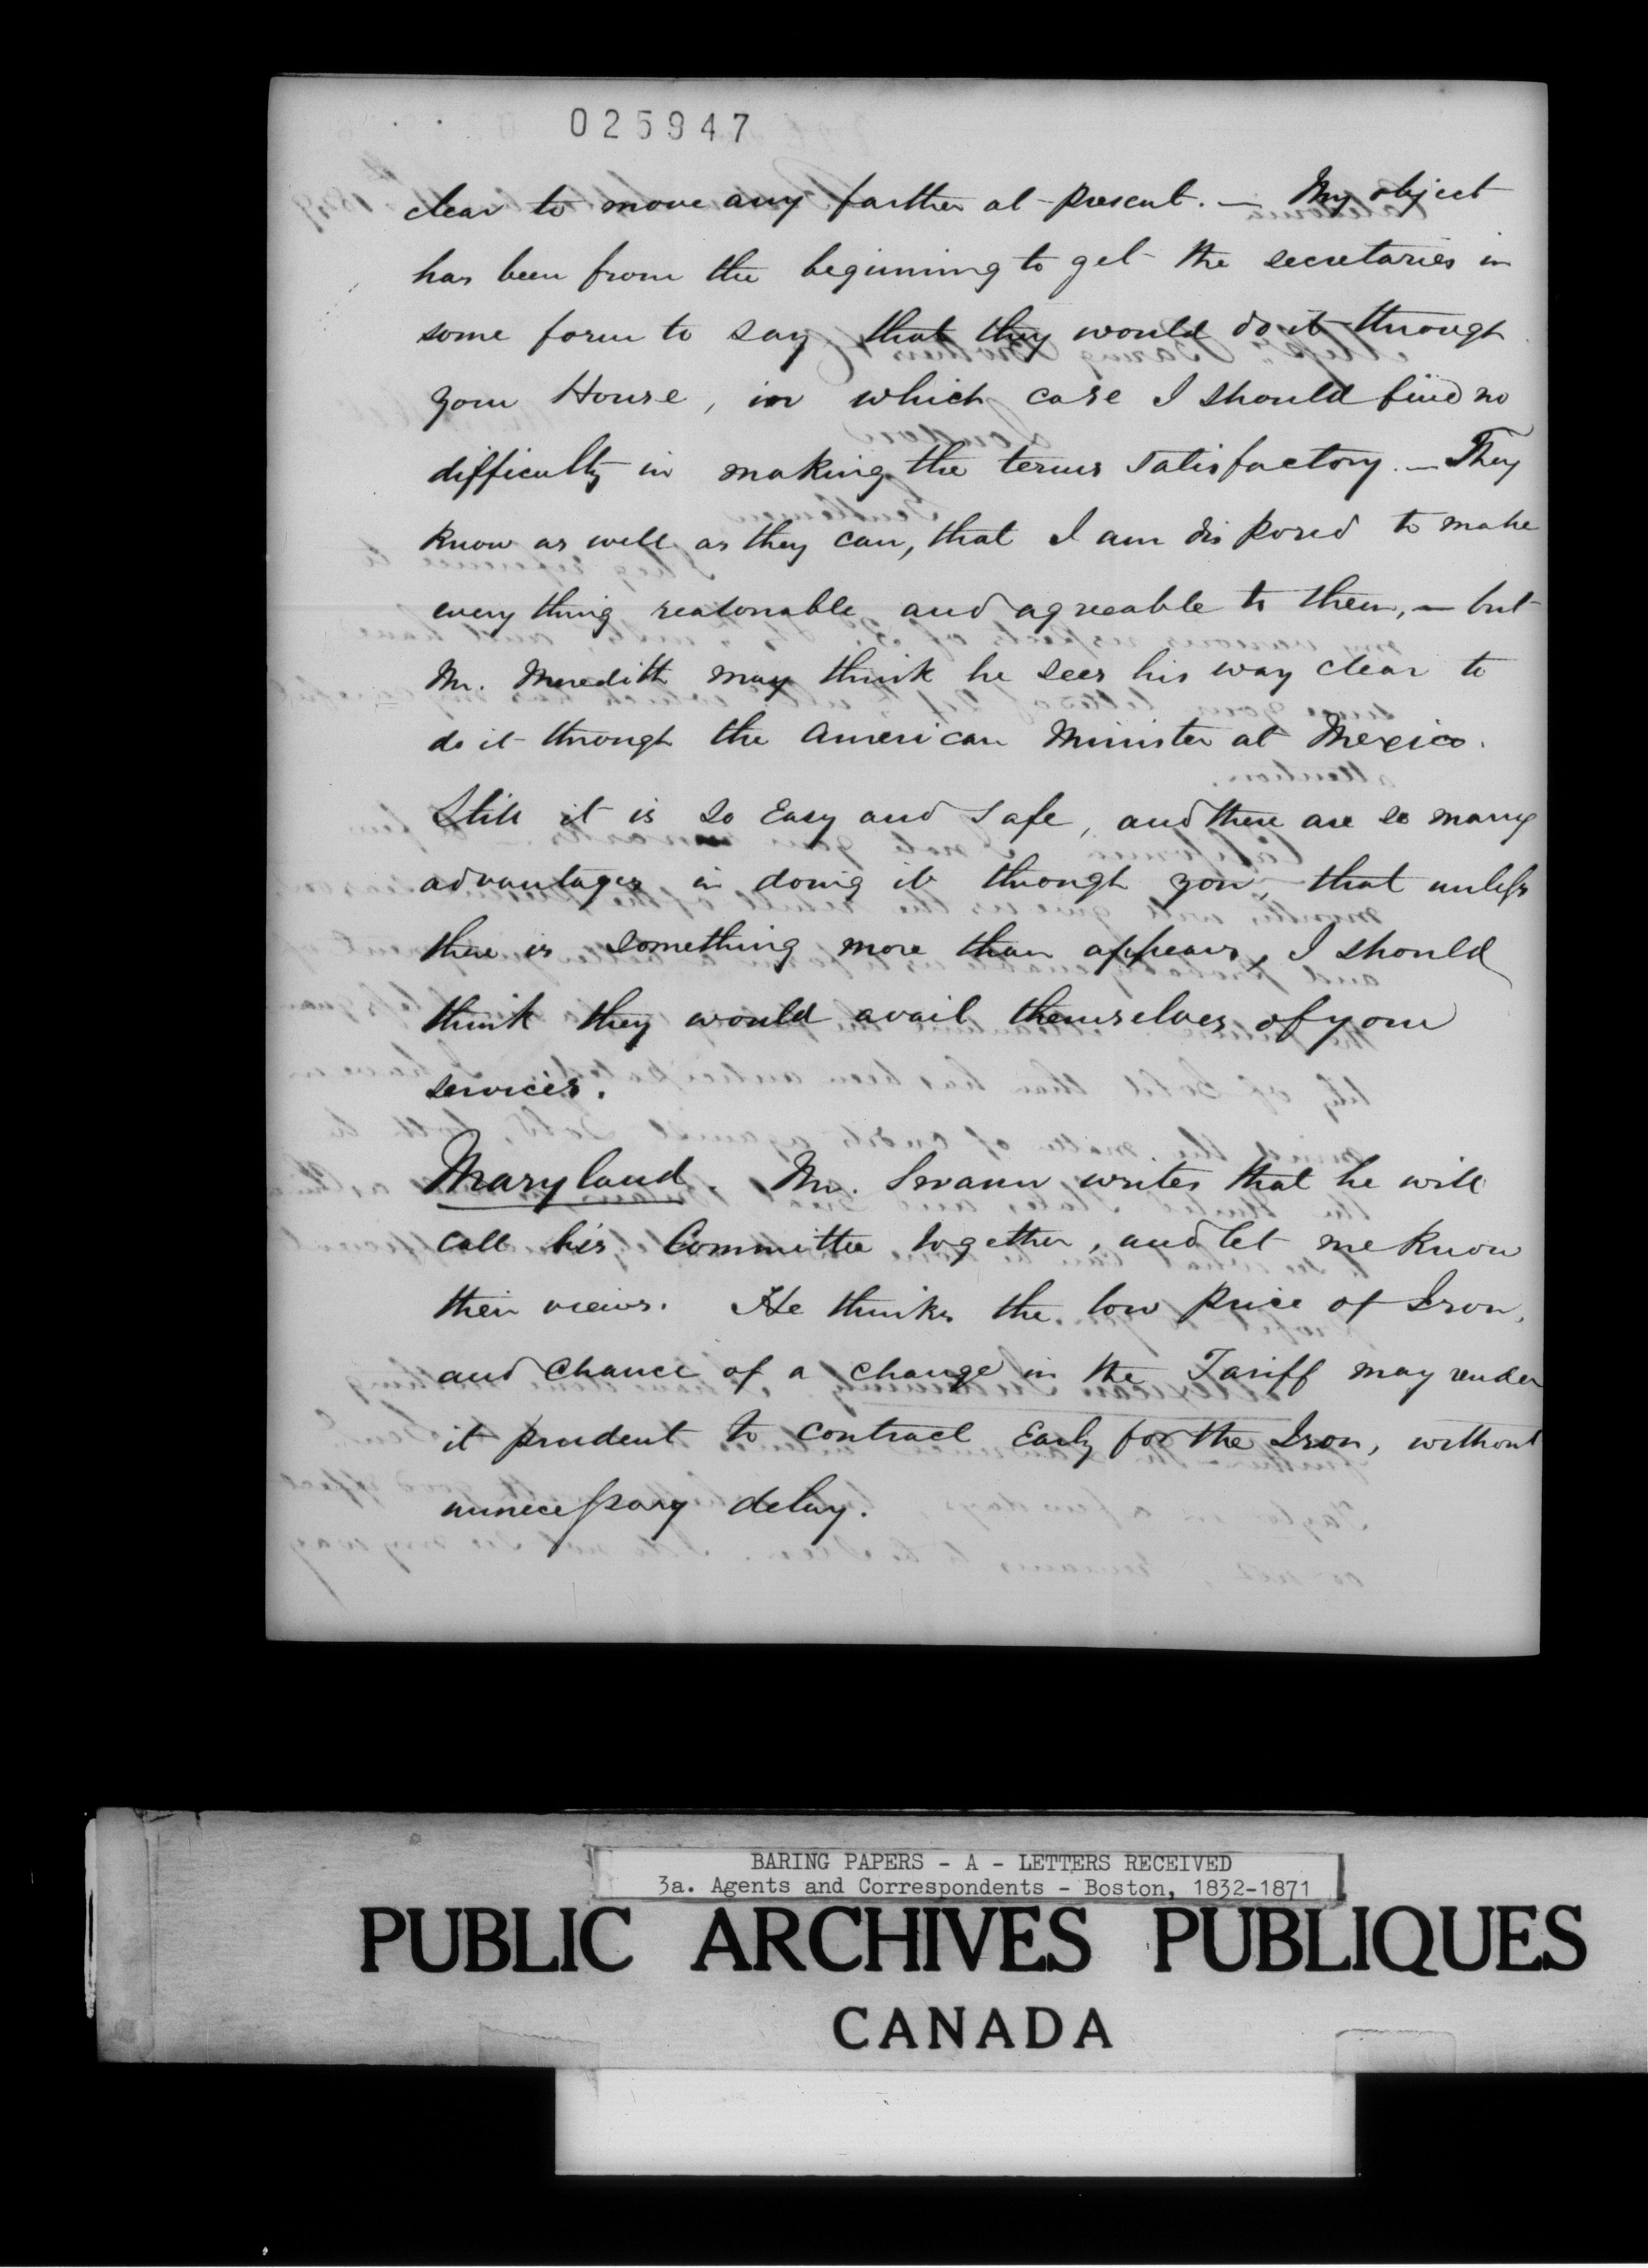 025947
clear to move any farther at present. — My object
has been from the beginning to get the secretaries in
some form to say that they would do it through
your House, in which case I should find no
difficulty in making the terms satisfactory. — They
know as well as they can, that I am disposed to make
every thing reasonable and agreeable to them, — but
Mr. Meredith may think he sees his way clear to
do it through the American Minister at Mexico.
Still it is so Easy and safe, and there are so many
advantages in doing it through you, that unless
there is something more than appears, I should
think they would avail themselves of your
services.
Maryland. Mr. Swann writes that he will
call his Committee together, and let me know
their views. He thinks the low price of Iron,
and Chance of a change in the Tariff may render
it prudent to contract Early for the Iron, without
unnecessary delay.
BARING PAPERS - A - LETTERS RECEIVED
3a. Agents and Correspondents - Boston, 1832-1871
PUBLIC ARCHIVES PUBLIQUES
CANADA